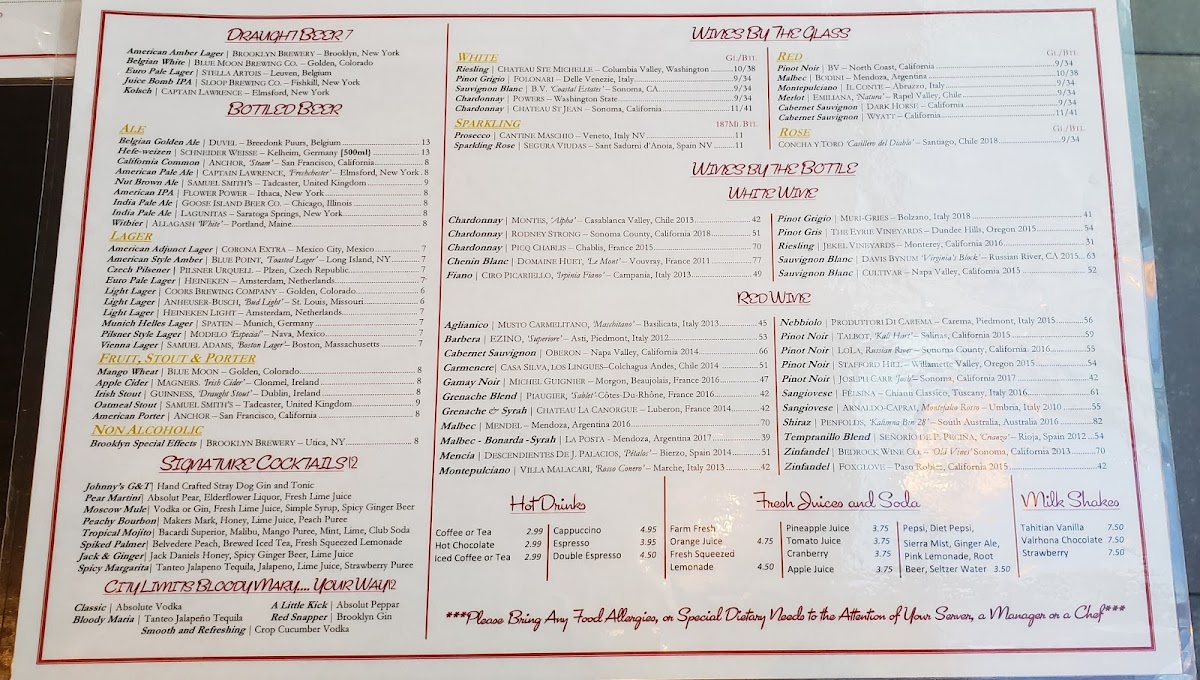 Draught Beer 7
American Amber Lager | Brooklyn Brewery – Brooklyn, New York
Belgian White | Blue Moon Brewing Co. – Golden, Colorado
Euro Pale Lager | Stella Artois – Leuven, Belgium
Juice Bomb IPA | Sloop Brewing Co. – Fishkill, New York
Kolsch | Captain Lawrence – Elmsford, New York
Bottled Beer
Ale
Belgian Golde Ale | Duvel – Breedonk Puurs, Belgium 13
Hefe-weizen | Schneider Weisse – Kelheim, Germany {500ml} 13
California Common | Anchor, 'Steam' – San Francisco, California 8
American Pale Ale | Captain Lawrence, 'Freshchester' – Elmsford, New York 8
Nut Brown Ale | Samuel Smith's - Tadcaster, United Kingdom 9
American IPA | Flower Power – Ithaca, New York 8
India Pale Ale | Goose Island Beer Co. – Chicago, Illinois 8
India Pale Ale | Lagunitas – Saratoga Springs, New York 8
Witbier | Allagash 'White' – Portland, Maine 8
Lager
American Adjunct Lager | Corona Extra – Mexico City, Mexico 7
American Style Amber | Blue Point, 'Toasted Lager' – Long Island, NY 7
Czech Pilsener | Pilsner Urquell – Plzen, Czech Republic 7
Euro Pale Lager | Heineken – Amsterdam, Netherlands 7
Light Lager | Coors Brewing Company – Golden, Colorado 6
Light Lager | Anheuser-Busch, 'Bud Light' – St. Louis, Missouri 6
Light Lager | Heineken Light – Amsterdam, Netherlands 7
Munich Helles Lager | Spaten – Munich, Germany 7
Pilsner Style Lager | Modelo 'Especial' – Nava, Mexico 7
Vienna Lager | Samuel Adams, 'Boston Lager' – Boston, Massachusetts 7
Fruit, Stout & Porter
Mango Wheat | Blue Moon – Golden, Colorado 8
Apple Cider | Magners, 'Irish Cider' – Clonmel, Ireland 8
Irish Stout | Guinness, 'Draught Stout' – Dublin, Ireland 8
Oatmeal Stout | Samuel Smith's – Tadcaster, United Kingdom 9
American Porter | Anchor – San Francisco, California 8
Non Alcoholic
Brooklyn Special Effects | Brooklyn Brewery – Utica, NY 8
Signature Cocktails 12
Johnny's G&T| Hand Crafted Stray Dog Gin and Tonic
Pear Martini| Absolut Pear, Elderflower Liquor, Fresh Lime Juice
Moscow Mule| Vodka or Gin, Fresh Lime Juice, Simple Syrup, Spicy Ginger Beer
Peachy Bourbon| Makers Mark, Honey, Lime Juice, Peach Puree
Tropical Mojito| Bacardi Superior, Malibu, Mango Puree, Mint, Lime, Club Soda
Spiked Palmer| Belvedere Peach, Brewed Iced Tea, Fresh Squeezed Lemonade
Jack & Ginger| Jack Daniels Honey, Spicy Ginger Beer, Lime Juice
Spicy Margarita| Tanteo Jalapeno Tequila, Jalapeno, Lime Juice, Strawberry Puree
City Limits Bloody Mary.... Your Way 12
Classic | Absolute Vodka A Little Kick | Absolut Peppar
Bloody Maria | Tanteo Jalapeño Tequila Red Snapper | Brooklyn Gin
Smooth and Refreshing | Crop Cucumber Vodka
Wines By The Glass
White Gl/Btl
Riesling | Chateau Ste Michelle - Columbia Valley, Washington 10/38
Pinot Grigio | Folonari - Delle Venezie, Italy 9/34
Sauvignon Blanc | B.V. 'Coastal Estates' – Sonoma, CA 9/34
Chardonnay | Powers – Washington State 9/34
Chardonnay | Chateau St Jean – Sonoma, California 11/41
Sparkling 187ML Btl
Prosecco | Cantine Maschio – Veneto, Italy NV 11
Sparkling Rose | Segura Viudas – Sant Sadurni d'Anoia, Spain NV 11
Red Gl/Btl
Pinot Noir | BV – North Coast, California 9/34
Malbec | Bodini – Mendoza, Argentina 10/38
Montepulciano | Il Conte – Abruzzo, Italy 9/34
Merlot | Emiliana, 'Natura' – Rapel Valley, Chile 9/34
Cabernet Sauvignon | Dark Horse – California 9/34
Cabernet Sauvignon | Wyatt – California 11/41
Rose Gl/Btl
Concha y Toro 'Casillero del Diablo' – Santiago, Chile 2018 9/34
Wines By The Bottle
White Wine
Chardonnay | Montes, 'Alpha' – Casablanca Valley, Chile 2013 42
Chardonnay | Rodney Strong – Sonoma County, California 2018 51
Chardonnay | Picq Chablis – Chablis, France 2015 70
Chenin Blanc | Domaine Huet, 'Le Mont' – Vouvray, France 2011 77
Fiano | Ciro Picariello, 'Irpinia Fiano' – Campania, Italy 2013 49
Pinot Grigio | Muri-Gries – Bolzano, Italy 2018 41
Pinot Gris | The Eyrie Vineyards – Dundee Hills, Oregon 2015 54
Riesling | Jekel Vineyards – Monterey, California 2016 31
Sauvignon Blanc | Davis Bynum 'Virginia's Block' – Russian River, CA 2015 63
Sauvignon Blanc | Cultivar – Napa Valley, California 2015 52
Red Wine
Aglianico | Musto Carmelitano, 'Maschitano' – Basilicata, Italy 2013 45
Barbera | Ezino, 'Superiore' – Asti, Piedmont, Italy 2012 53
Cabernet Sauvignon | Oberon – Napa Valley, California 2014 66
Carmenere| Casa Silva, Los Lingues–Colchagua Andes, Chile 2014 51
Gamay Noir | Michel Guignier – Morgon, Beaujolais, France 2016 47
Grenache Blend | Piaugier, 'Sablet' Côtes-Du-Rhône, France 2016 42
Grenache & Syrah | Chateau La Canorgue – Luberon, France 2014 42
Malbec | Mendel – Mendoza, Argentina 2016 70
Malbec - Bonarda -Syrah | La Posta - Mendoza, Argentina 2017 39
Mencía | Descendientes De J. Palacios, 'Pétalos' – Bierzo, Spain 2014 51
Montepulciano | Villa Malacari, 'Rosso Conero' – Marche, Italy 2013 42
Nebbiolo | Produttori Di Carema – Carema, Piedmont, Italy 2015 56
Pinot Noir | Talbot, 'Kali Hart' – Salinas, California 2015 59
Pinot Noir | Lola, Russian River – Sonoma County, California 2016 55
Pinot Noir | Stafford Hill – Willamette Valley, Oregon 2015 54
Pinot Noir | Joseph Carr 'Josh' – Sonoma, California 2017 42
Sangiovese | Félsina – Chianti Classico, Tuscany, Italy 2016 61
Sangiovese | Arnaldo-Caprai, Montefalco Rosso – Umbria, Italy 2010 55
Shiraz | Penfolds, 'Kalimna Bin 28' – South Australia, Australia 2016 82
Tempranillo Blend | Señorio de P. Peciña, 'Crianza' – Rioja, Spain 2012 54
Zinfandel | Bedrock Wine Co. – 'Old Vines' Sonoma, California 2013 70
Zinfandel | Foxglove – Paso Robles, California 2015 42
Hot Drinks
Coffee or Tea 2.99
Hot Chocolate 2.99
Iced Coffee or Tea 2.99
Cappuccino 4.95
Espresso 3.95
Double Espresso 4.50
Fresh Juices and Soda
Farm Fresh
Orange Juice 4.75
Fresh Squeezed
Lemonade 4.50
Pineapple Juice 3.75
Tomato Juice 3.75
Cranberry 3.75
Apple Juice 3.75
Pepsi, Diet Pepsi,
Sierra Mist, Ginger Ale,
Pink Lemonade, Root
Beer, Seltzer Water 3.50
Milk Shakes
Tahitian Vanilla 7.50
Valrhona Chocolate 7.50
Strawberry 7.50
***Please Bring Any Food Allergies, or Special Dietary Needs to the Attention of Your Server, a Manager or a Chef***